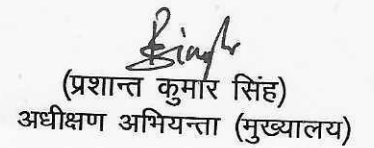 (प्रशान्त कुमार सिंह)
अधीक्षण अभियन्ता (मुख्यालय)